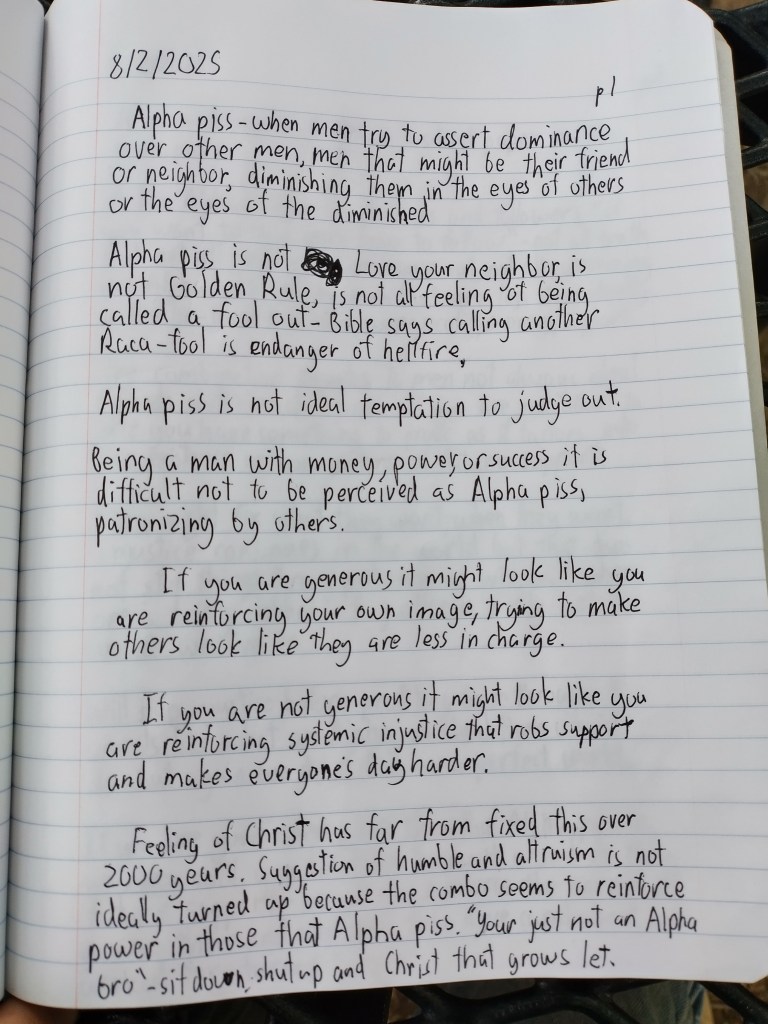 8/2/2025
p1
Alpha piss - when men try to assert dominance
over other men, men that might be their friend
or neighbor, diminishing them in the eyes of others
or the eyes of the diminished
Alpha piss is not Love your neighbor, is
not Golden Rule, is not all feeling of being
called a fool out - Bible says calling another
Raca-fool is endanger of hellfire.
Alpha piss is not ideal temptation to judge out.
Being a man with money, power, or success it is
difficult not to be perceived as Alpha piss,
patronizing by others.
If you are generous it might look like you
are reinforcing your own image, trying to make
others look like they are less in charge.
If you are not generous it might look like you
are reinforcing systemic injustice that robs support
and makes everyone's day harder.
Feeling of Christ has far from fixed this over
2000 years. Suggestion of humble and altruism is not
ideally turned up because the combo seems to reinforce
power in those that Alpha piss. "Your just not an Alpha
bro" - sit down, shut up and Christ that grows let.